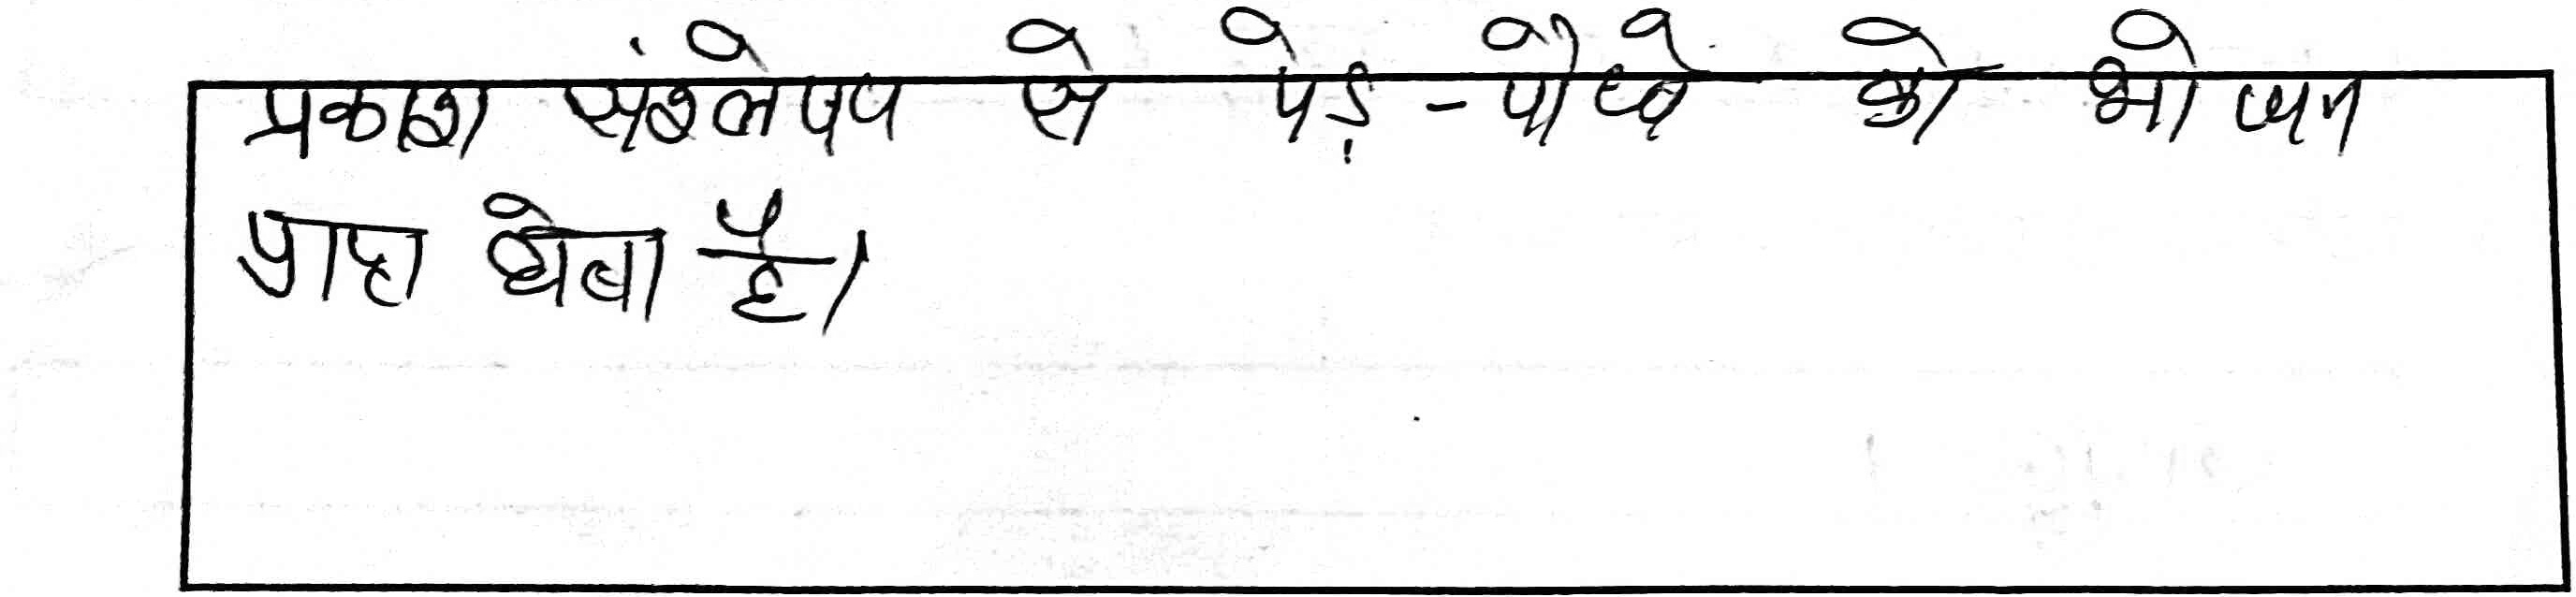 प्रकाश संश्लेषण से पेड़-पौधे को भोजन
प्राप्त होता है।